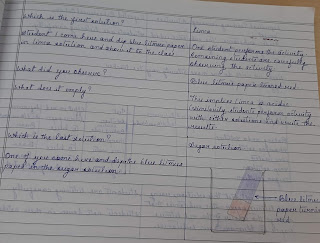 Which is the first solution?
student 1 come here and dip blue litmus paper
in lime solution and show it to the class
What did you observe?
What does it imply?
Which is the last solution?
One of you come here and dip the blue litmus
paper in the sugar solution
Lime
One student performs the activity
Remaining students are carefully
observing the activity
Blue litmus paper turned red
This implies lime is acidic
Similarly students perform activity
with other solutions and write the
results
Sugar solution
Blue litmus
paper turns
red